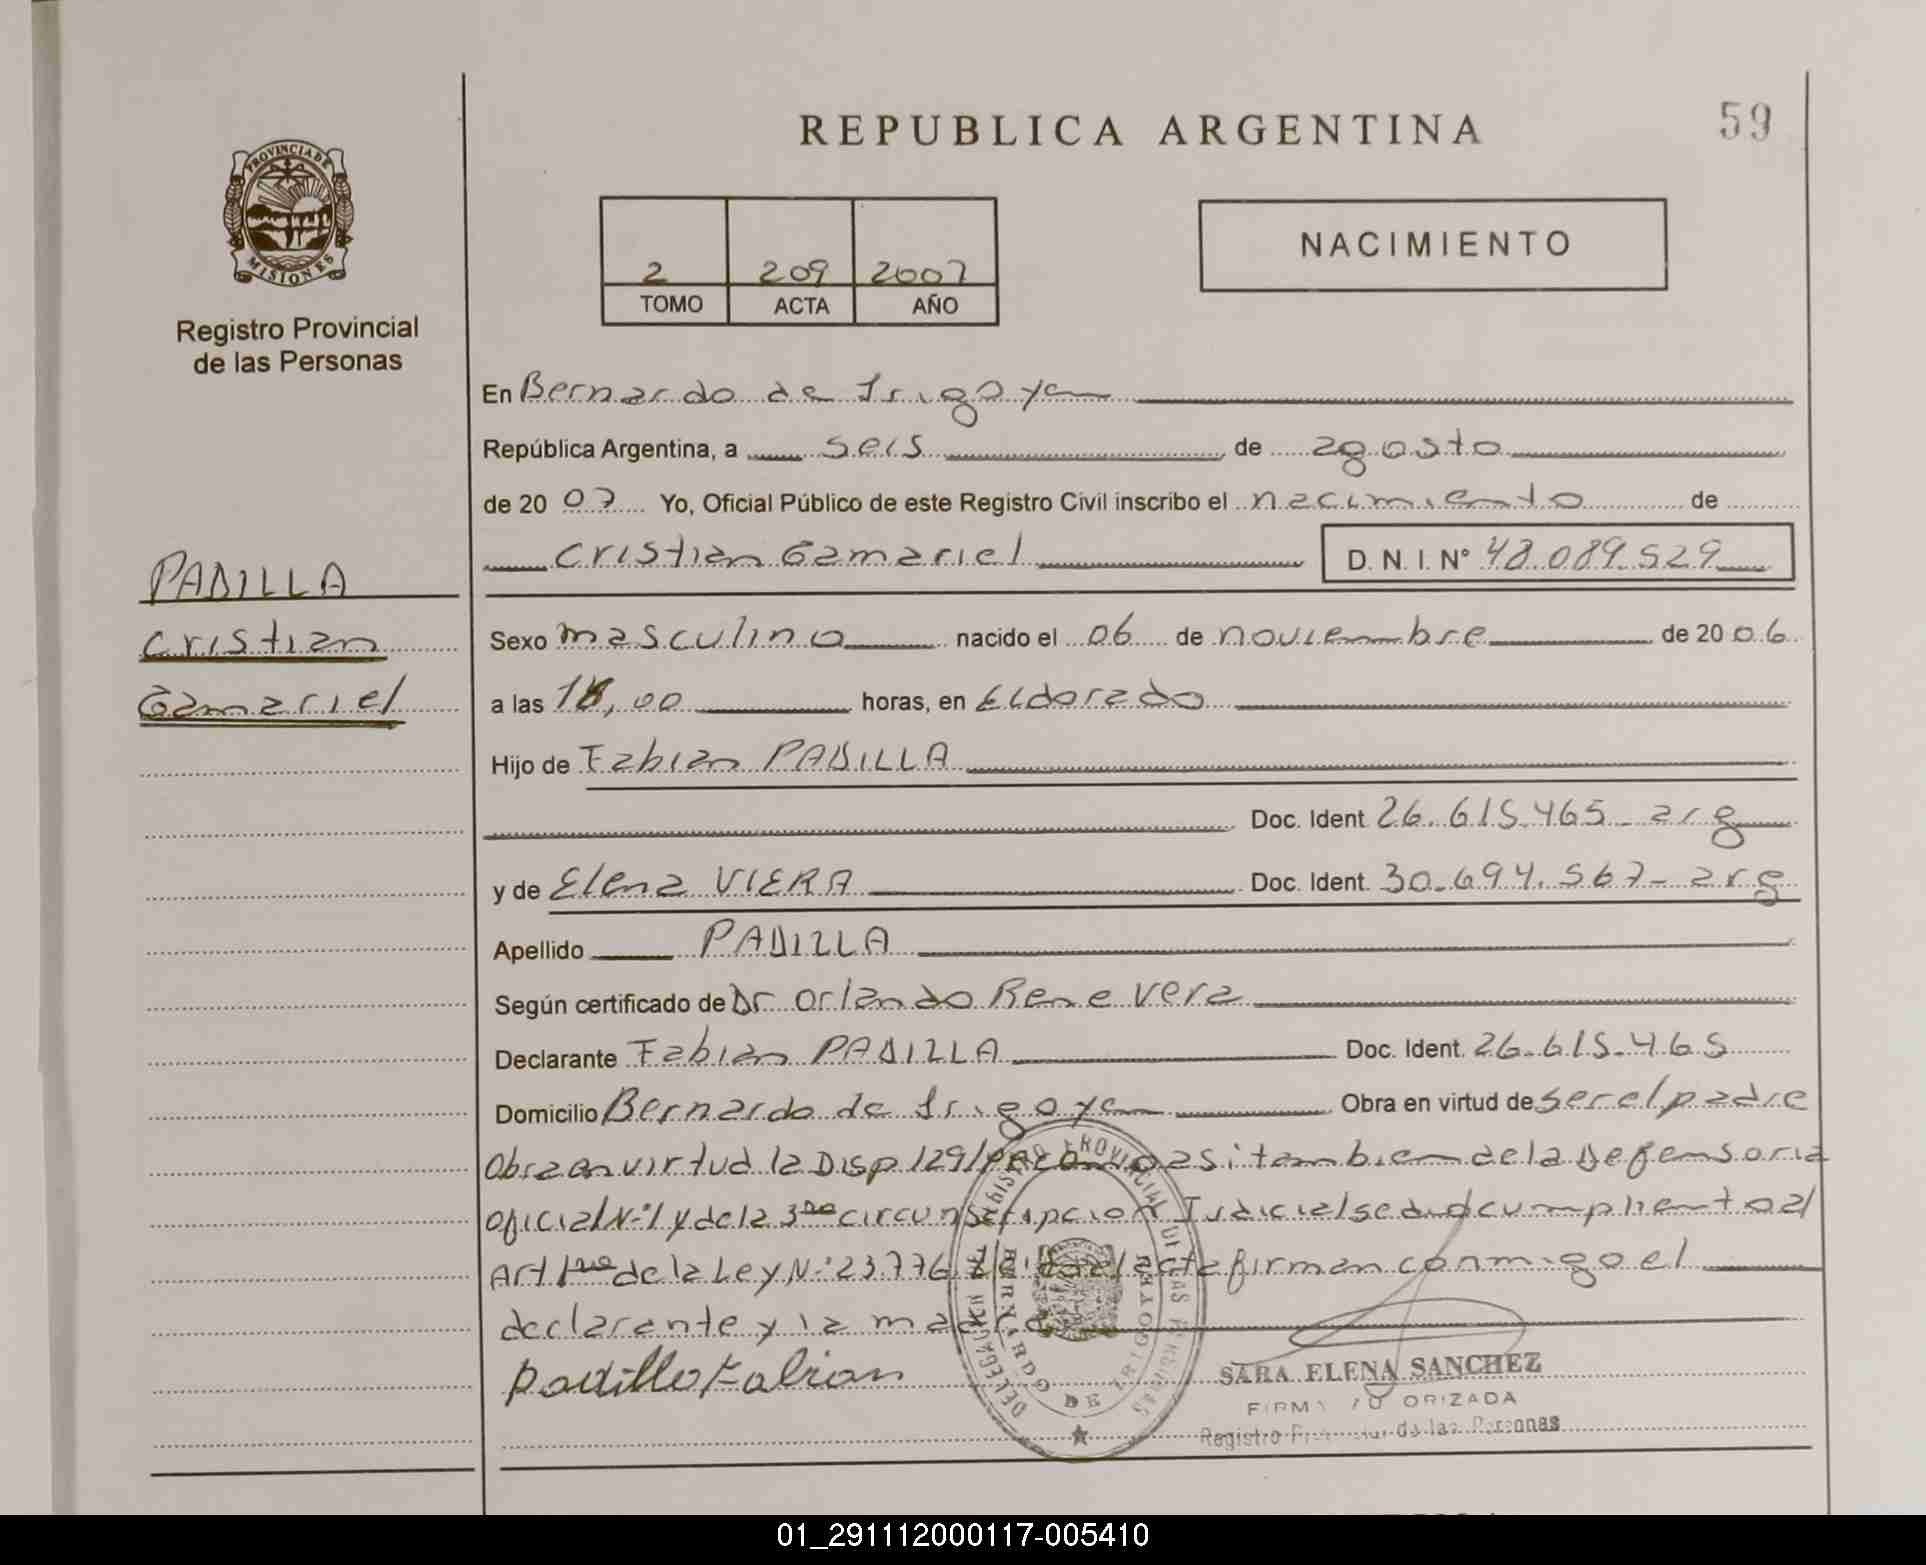 REPUBLICA ARGENTINA
59
PROVINCIA DE
MISIONES
Registro Provincial
de las Personas
2 209 2007
TOMO ACTA AÑO
NACIMIENTO
En Bernardo de Irigoyen
República Argentina, a seis de agosto
de 2007 Yo, Oficial Público de este Registro Civil inscribo el nacimiento de
Cristian Gamariel D. N. I. N° 48.089.529
PADILLA
Cristian
Gamariel
Sexo masculino nacido el 06 de noviembre de 2006
a las 18,00 horas, en Eldorado
Hijo de Fabian PADILLA
Doc. Ident. 26.615.465 - arg
y de Elena VIERA Doc. Ident. 30.694.567 - arg
Apellido PADILLA
Según certificado de Dr Orlando Rene Vera
Declarante Fabian PADILLA Doc. Ident. 26.615.465
Domicilio Bernardo de Irigoyen Obra en virtud de ser el padre
Obra en virtud la Disp 129/ como asi tambien de la Defensoria
oficial N°1 y de la 3ra circunscripcion Judicial se dio cumplimento al
Art 1ro de la Ley N° 23.776 Leida el acta firman conmigo el
declarante y la madre
Padilla Fabian
REGISTRO PROVINCIAL DE LAS PERSONAS
DELEGACION
BERNARDO DE IRIGOYEN
SARA ELENA SANCHEZ
FIRMA AUTORIZADA
Registro Provincial de las Personas
01_291112000117-005410